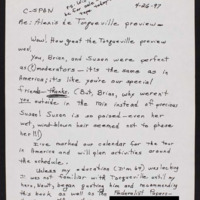 C-SPAN
4-26-97
Re: Alexis de Tocqueville preview—
Wow! How great the Tocqueville preview
was!
You, Brian, and Susan were perfect
moderators — it's the same as in
America; it's like you're our special
friends — thanks. (But, Brian, why weren't
you outside in the rain instead of previous
Susan! Susan is so poised — even her
wet, wind-blown hair seemed not to phase
her!!!)
I've marked our calendar for the tour
in America and will plan activities around
the schedule.
Unless my education (I'm 64) was lacking
I was not familiar with Tocqueville until my
hero, Newt, began pushing him and recommending
this book as well as the Federalist Papers—